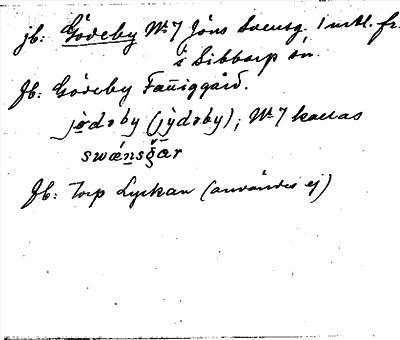 jb: Gödeby Nr 7 Jöns Svensg. 1 mtl. fr.
i Sibbarp sn.
Jb: Gödeby Fattiggård.
jødəby (jỳdəby); Nr 7 kallas
swǽnsgǟr
Jb: Torp Lyckan (användes ej)